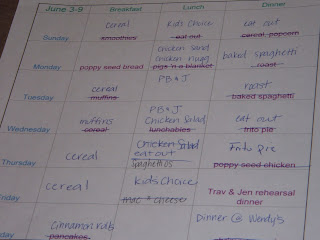 June 3-9 Breakfast Lunch Dinner
cereal Kids Choice eat out
Sunday smoothies eat out cereal, popcorn
chicken sand
chicken nugg baked spaghetti
Monday poppy seed bread pigs 'n a blanket roast
PB & J
cereal roast
Tuesday muffins baked spaghetti
PB & J
muffins Chicken Salad eat out
Wednesday cereal lunchables frito pie
Chicken Salad Frito Pie
cereal eat out
Thursday Spaghetti Os poppy seed chicken
cereal Kids Choice Trav & Jen rehearsal
Friday mac & cheese dinner
cinnamon rolls Dinner @ Wendy's
pancakes